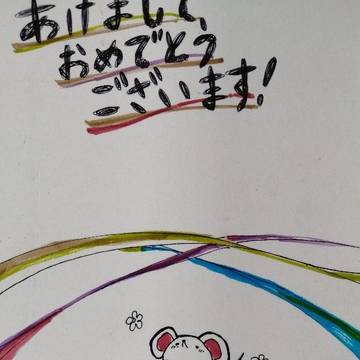 あけまして、
おめでとう
ございます!